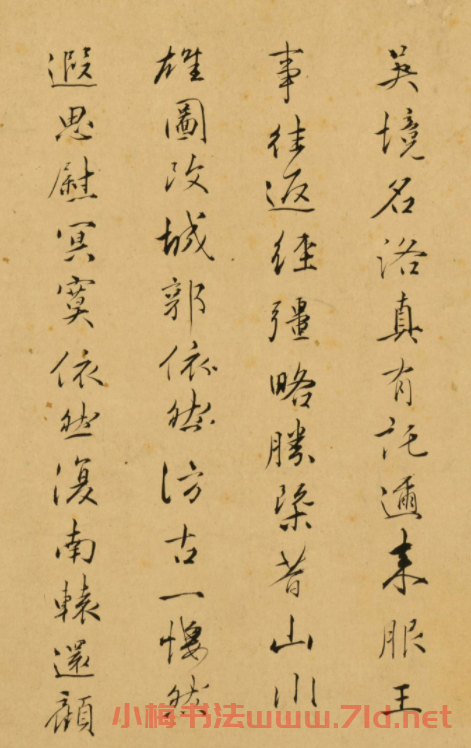 吳境名洛真有託邇來服王
事往返經疆略勝槩昔山川
雄圖改城郭依然訪古一慨然
遐思慰冥寞依然復南轅還顧
小梅书法www.7ld.net